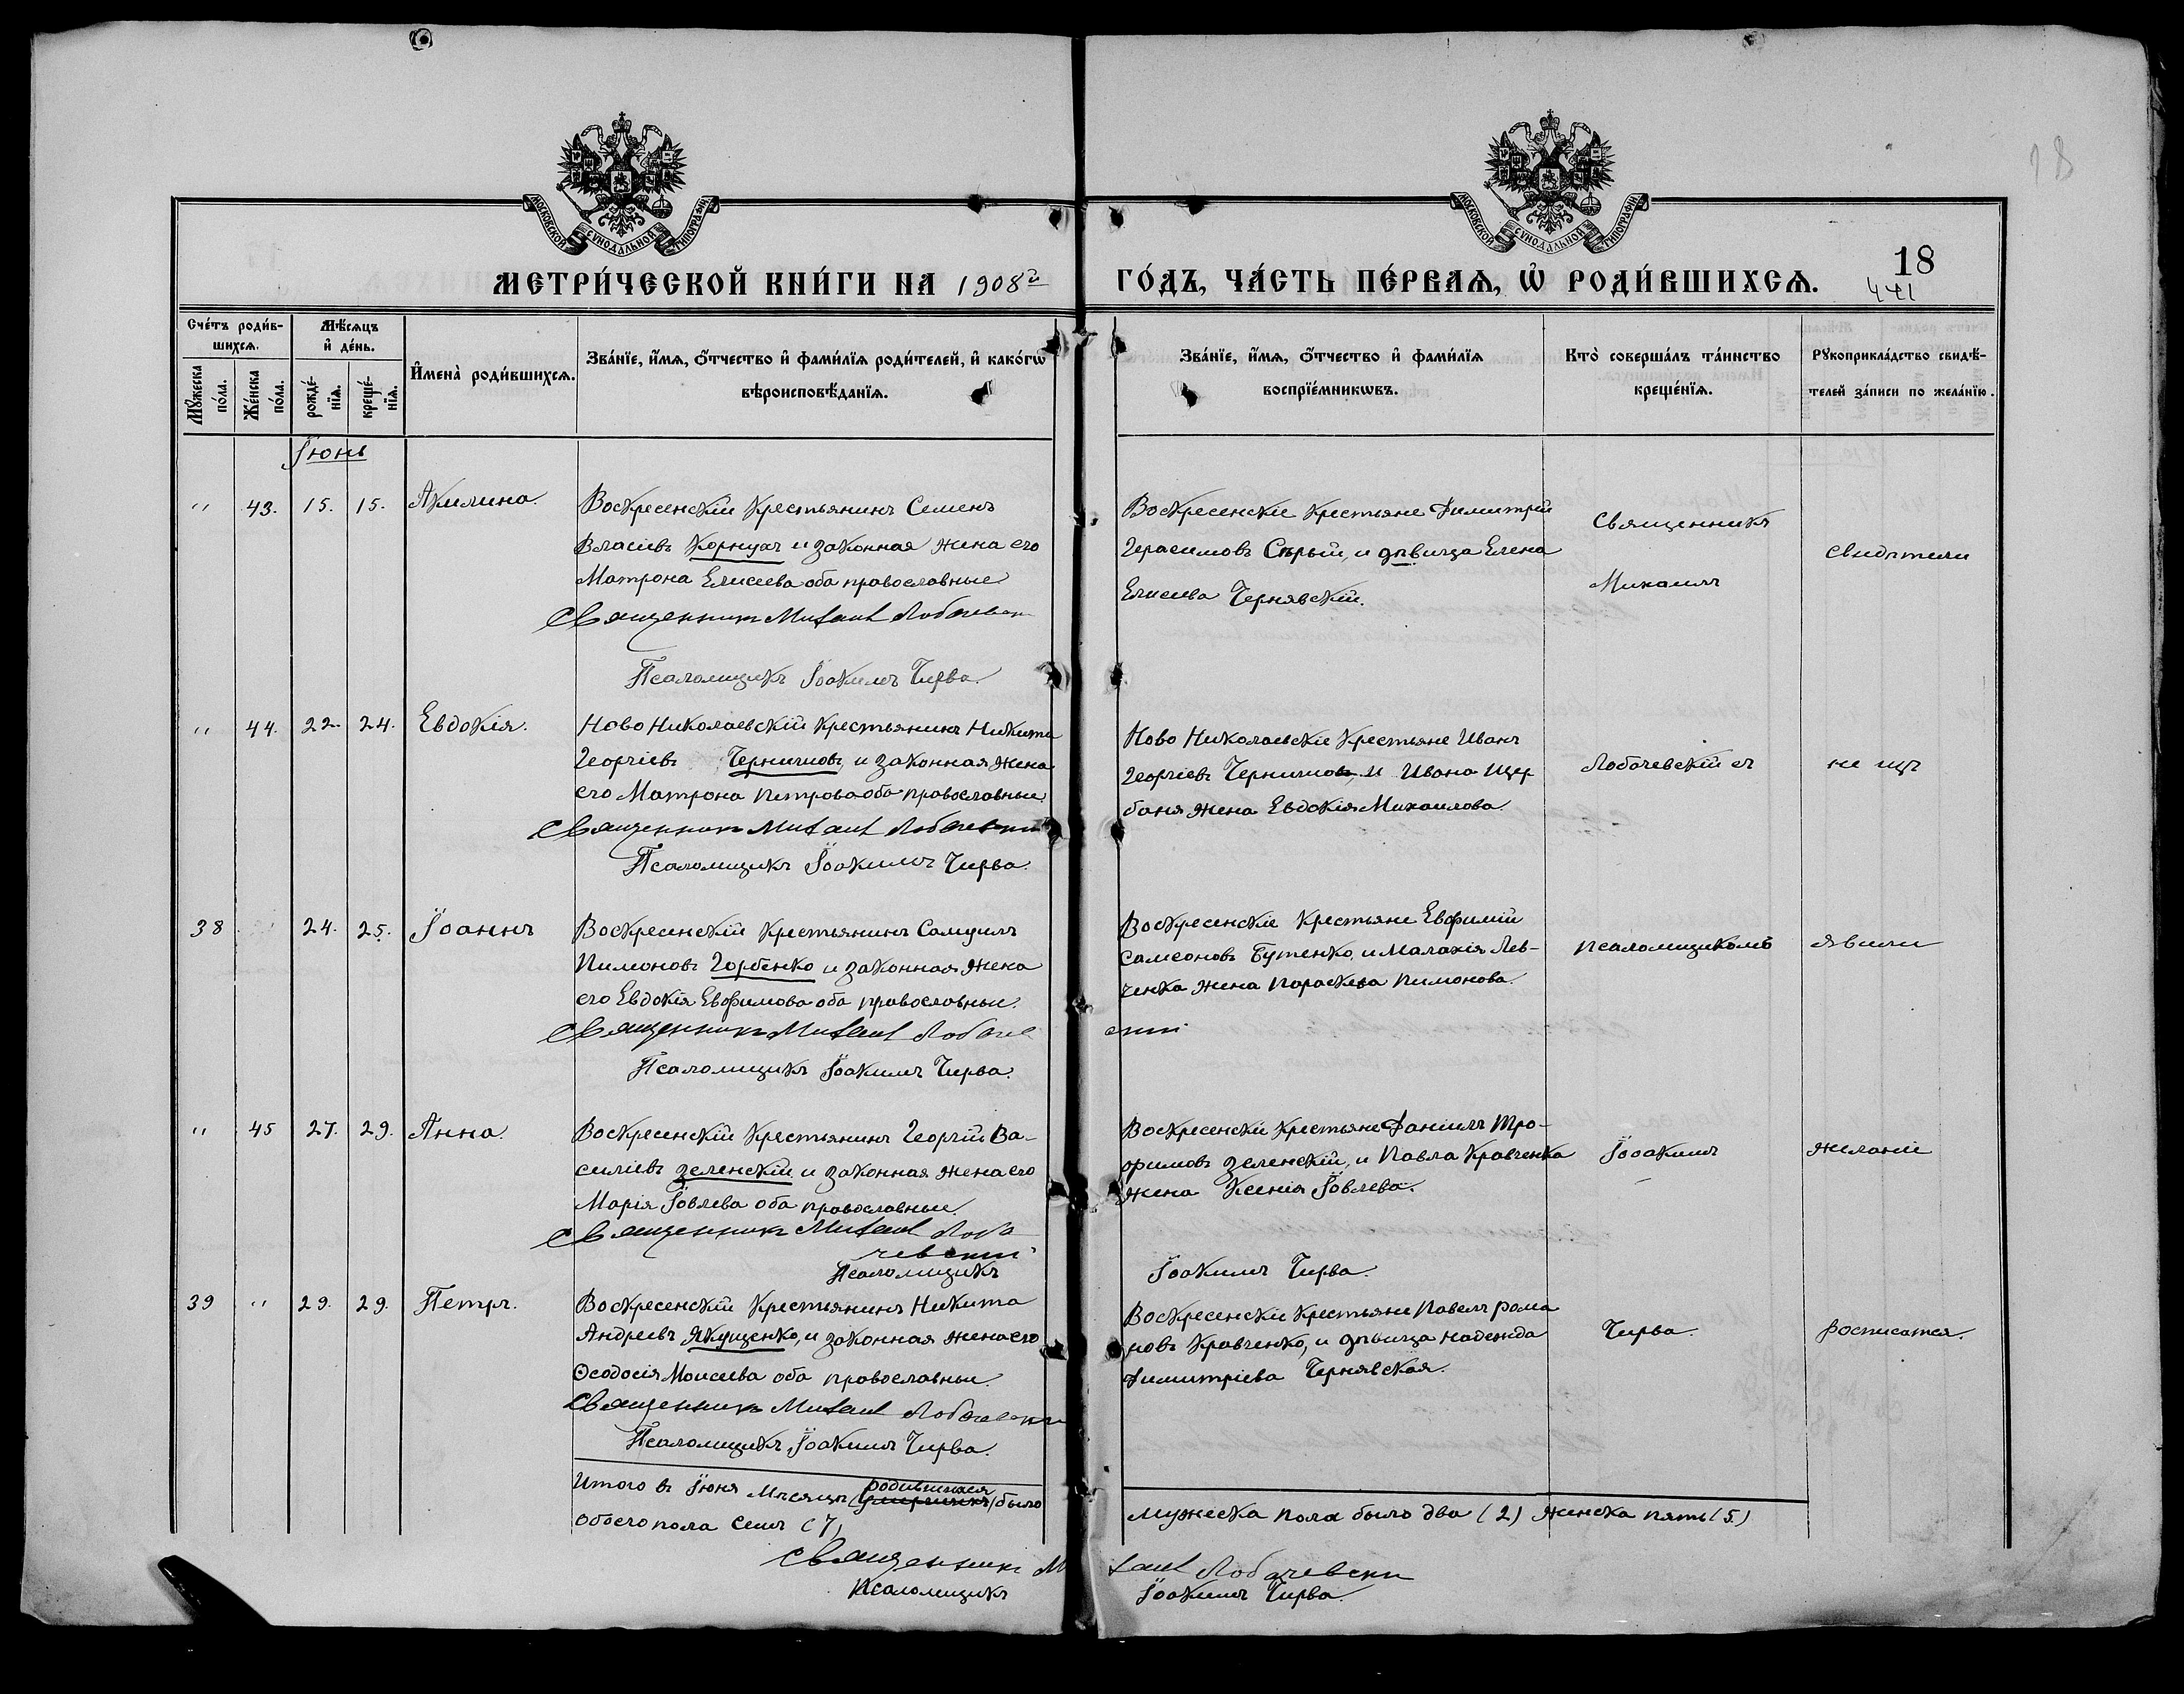 МОСКОВСКОЙ СѴНОДАЛЬНОЙ ТИПОГРАФІИ
МОСКОВСКОЙ СѴНОДАЛЬНОЙ ТИПОГРАФІИ
18
МЕТРИ́ЧЕСКОЙ КНИ́ГИ НА 1908й ГО́ДЪ, ЧА́СТЬ ПЕ́РВАѦ, Ѿ РОДИ́ВШИХСѦ.
18
441
Сче́тъ роди́в-
шихсѧ.
Мѣ́сѧцъ
и҆ де́нь.
Мꙋ́жеска
по́ла.
Же́нска
по́ла.
рожде́-
нїѧ.
креще́-
нїѧ.
И҆мена̀ роди́вшихсѧ.
Зва́нїе, и҆́мѧ, ѻ҆́тчество и҆ фами́лїѧ роди́телей, и҆ како́гѡ
вѣроисповѣ́данїѧ.
Зва́нїе, и҆́мѧ, ѻ҆́тчество и҆ фами́лїѧ
воспрїе́мникѡвъ.
Кто̀ соверша́лъ та́инство
креще́нїѧ.
Рꙋкоприкла́дство свидѣ́-
телей за́писи по жела́нїю.
Іюнь
" 43. 15. 15. Акилина.
Воскресенскій крестьянинъ Семенъ
Власіевъ Корнухъ и законная жена его
Матрона Елисеева оба православные
Священникъ Михаилъ Лобачевскі
Псаломщикъ Іоакимъ Чирва.
Воскресенскіе крестьяне Димитрій
Герасимовъ Сѣрый, и дѣвица Елена
Елисеева Чернявскій.
Священникъ
Михаилъ
свидѣтели
" 44. 22. 24. Евдокія.
Ново Николаевскій крестьянинъ Никита
Георгіевъ Черничновъ, и законная жена
его Матрона Петрова оба православные.
Священникъ Михаилъ Лобачевскій
Псаломщикъ Іоакимъ Чирва.
Ново Николаевскіе крестьяне Иванъ
Георгіевъ Черничновъ, и Ивана Щер
баня жена Евдокія Михаилова.
Лобачевскій съ
не изъ
38 24. 25. Іоаннъ
Воскресенскій крестьянинъ Самуилъ
Пимоновъ Горбенко и законная жена
его Евдокія Евфимова оба православные.
Священникъ Михаилъ Лобачевскій
Псаломщикъ Іоакимъ Чирва.
Воскресенскіе крестьяне Евфимій
Самсоновъ Бутенко, и Малахія Лев-
ченка жена Параскева Пимонова.
псаломщикомъ
явили
" 45 27. 29. Анна.
Воскресенскій крестьянинъ Георгій Ва-
силіевъ Зеленскій и законная жена его
Марія Іовлева оба православные.
Священникъ Михаилъ Лоба
чевскій
Псаломщикъ Іоакимъ Чирва.
Воскресенскіе крестьяне Даніилъ Тро-
фимовъ Зеленскій, и Павла Кравченка
жена Ксенія Іовлева.
Іоакимъ
желаніе
39 " 29. 29. Петръ.
Воскресенскій крестьянинъ Никита
Андреевъ Якущенко, и законная жена его
Ѳеодосія Моисеева оба православные.
Священникъ Михаилъ Лобачевскій
Псаломщикъ Іоакимъ Чирва.
Воскресенскіе крестьяне Павелъ Рома
новъ Кравченко, и дѣвица Надежда
Димитріева Чернявская.
Чирва.
росписатся.
Итого въ Іюня мѣсяцѣ (умершихъ) родившихся было
обоего пола семь (7)
мужеска пола было два (2) женска пять (5)
Священникъ Михаилъ Лобачевскі
Псаломщикъ Іоакимъ Чирва.